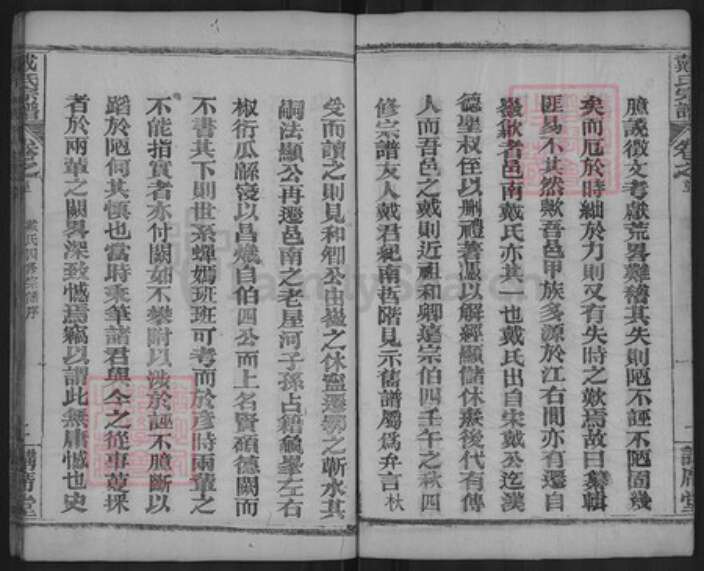 戴氏宗譜
卷之首
臆說徵文考獻荒畧難稽其失則陋不誣不陋固幾
矣而厄於時絀於力則又有失時之歎焉故曰纂輯
匪易不其然歟吾邑甲族多源於江右間亦有遷自
歟者邑南戴氏亦其一也戴氏出自宋戴公迄漢
德聖叔侄以刪禮著憑以解經顯儲休衍後代有傳
人而吾邑之戴則近祖和卿遠宗伯四壬午之秋四
修宗譜友人戴君紀南哲階見示舊譜屬爲弁言
受而讀之則見和卿公由之休寧遷鄂之蘄水其
嗣法顯公再遷邑南之老屋河子孫占籍左右
椒衍瓜緜寖以昌熾自伯四公而上名賢碩德闕而
不書其下則世系蟬嫣班班可考而於彥時兩輩之
不能指實者亦付闕如不攀附以涉於誣不臆斷以
蹈於陋何其慎也當時秉筆諸君與今之從事蒐採
者於兩輩之闕畧深致憾焉竊以謂此無庸憾也史
戴氏宗譜
卷之首
戴氏四修宗譜序